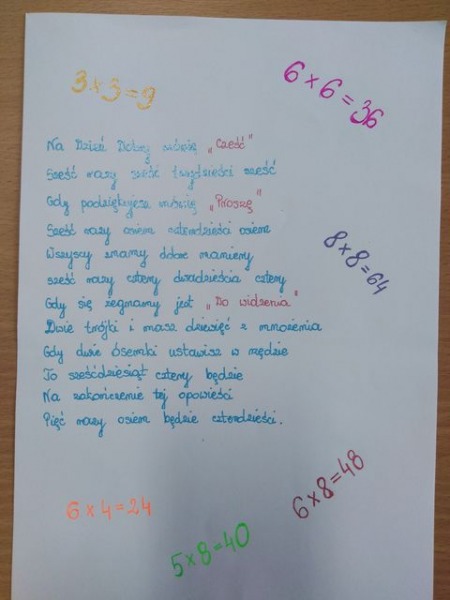 3 x 3 = 9
6 x 6 = 36
Na Dzień Dobry mówię "Cześć"
Sześć razy sześć trzydzieści sześć
Gdy podziękujesz, mówię "Proszę"
Sześć razy osiem czterdzieści osiem
Wszyscy znamy dobre maniery
sześć razy cztery dwadzieścia cztery
Gdy się żegnamy jest "Do widzenia"
8 x 8 = 64
Dwie trójki i masz dziewięć z mnożenia
Gdy dwie ósemki ustawisz w rzędzie
To sześćdziesiąt cztery będzie
Na zakończenie tej opowieści
Pięć razy osiem będzie czterdzieści.
6 x 4 = 24
5 x 8 = 40
6 x 8 = 48